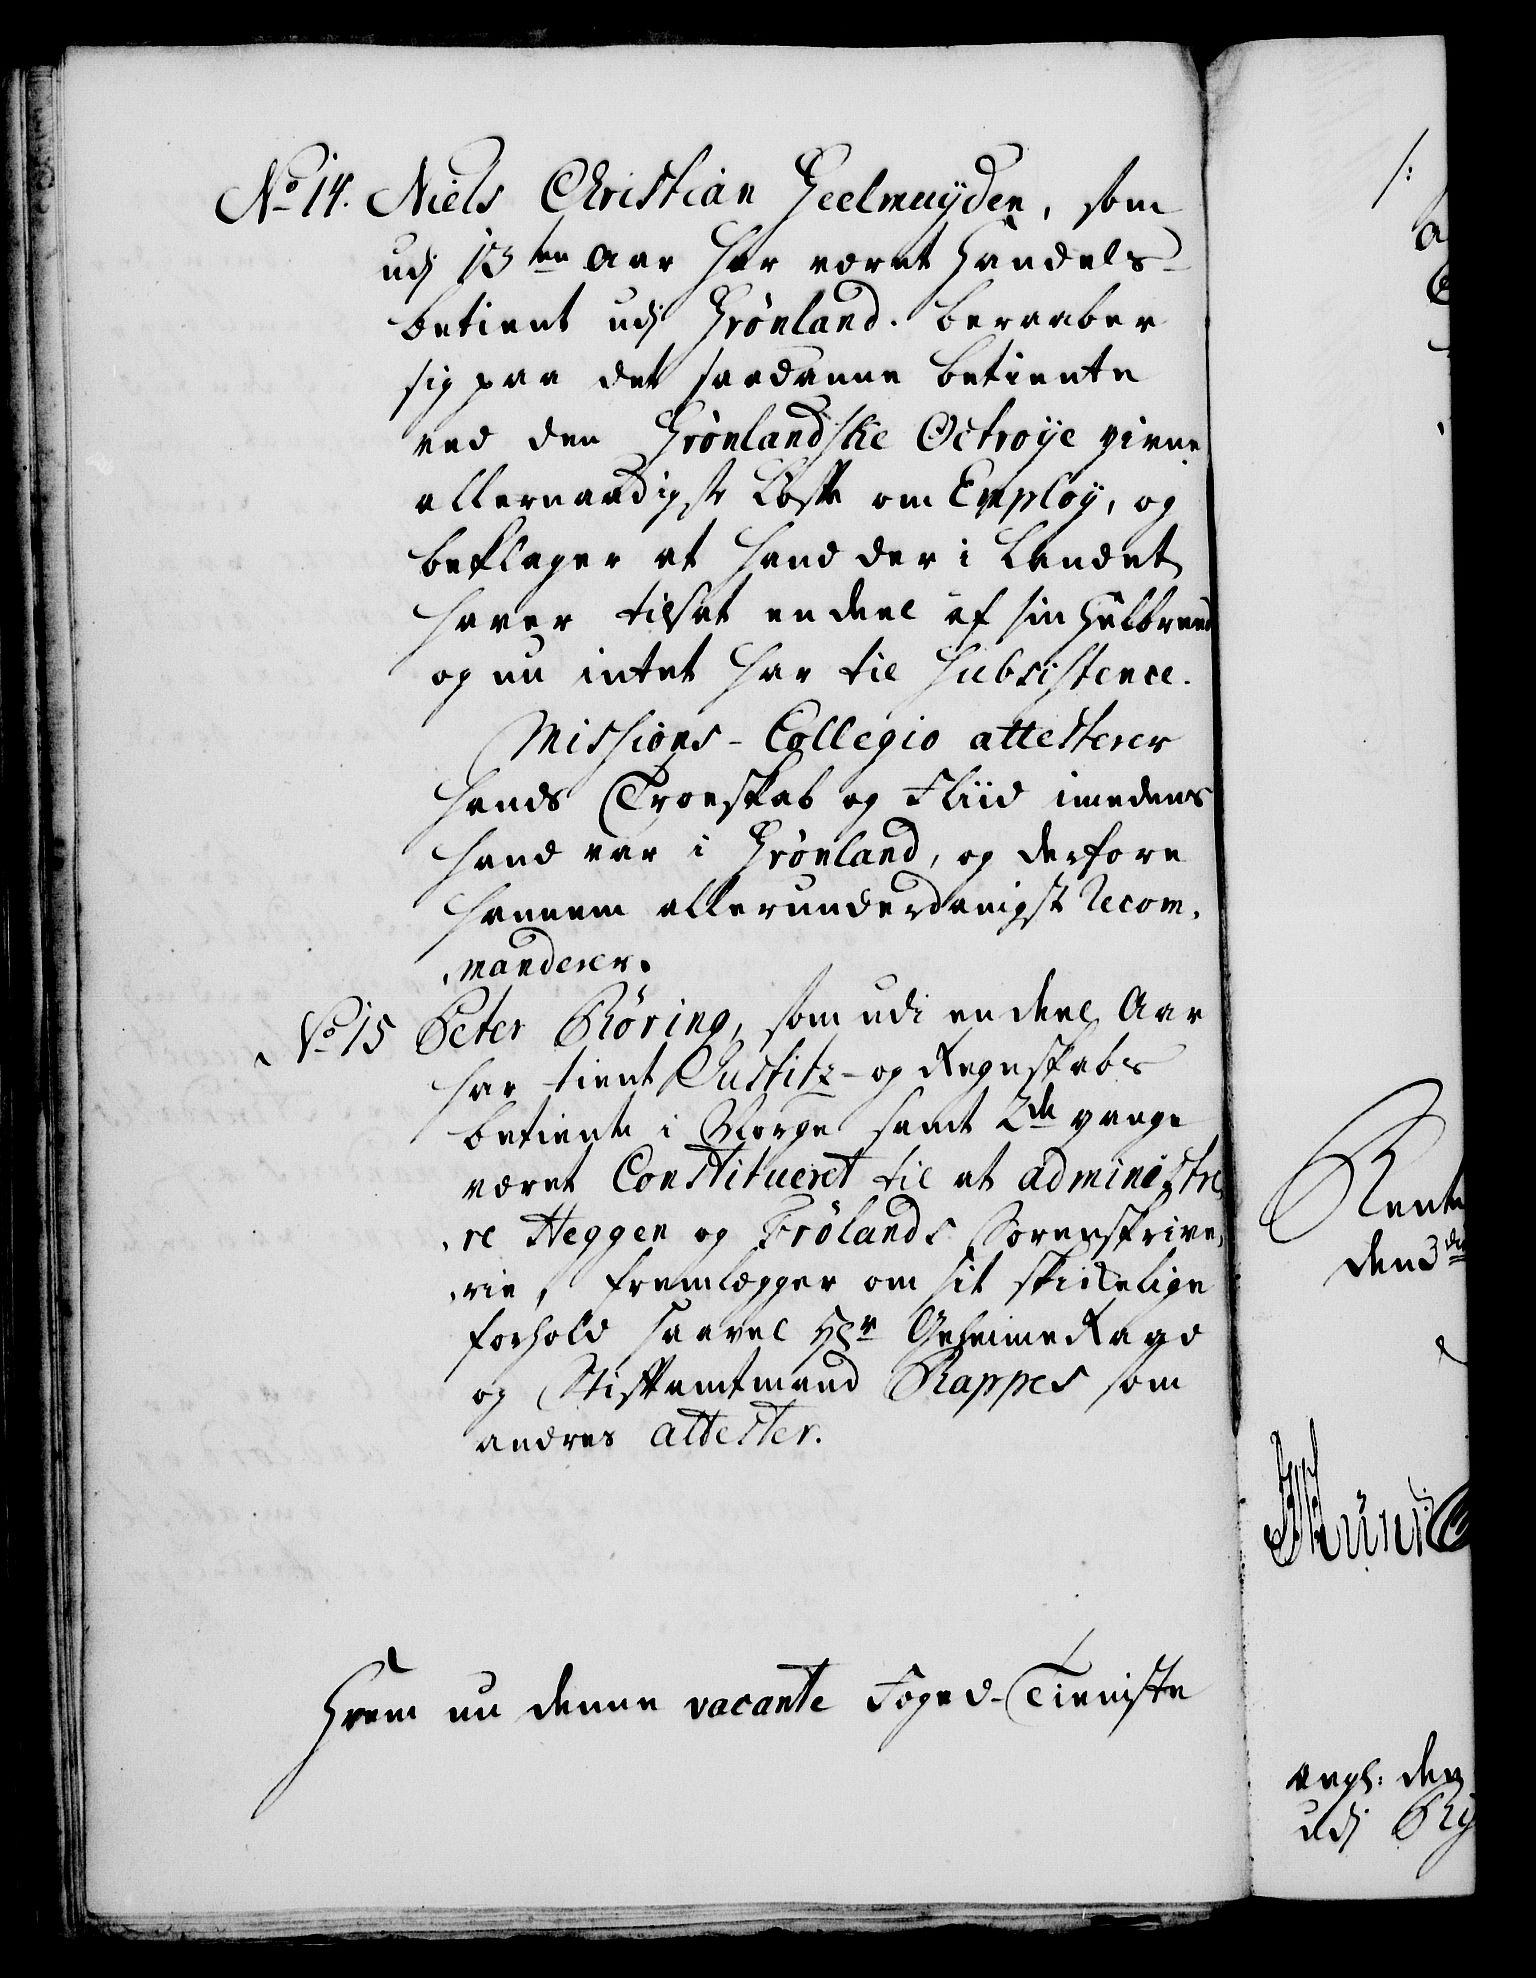 No 14. Niels Christian Geelmuyden, som
udj 13en Aar har været Handels-
betient udj Grønland. beraaber
sig paa det saadanne betiente
ved den Grønlandske Octroye givne
allernaadigste Løfte om Employ, og
beklager at hand der i Landet
haver tilsat en deel af sin Helbreed
og nu intet har til Subsistence.
Missions-Collegio attesterer
hands Troeskab og Fliid imedens
hand var i Grønland, og derfore
hannem allerunderdanigst recom-
manderer.
No 15 Peter Røring, som udi en deel Aar
har tient Justitz- og Regnskabs
betiente i Norge samt 2de gange
været Constitueret til at administre-
re Heggen og Frølands Sorenskrive-
rie, fremlegger om sit skikkelige
forhold saavel Hr Geheime Raad
og Stiftamtmand Rappes som
andres attester.
Hvem nu denne vacante Foged-Tieniste
Rente
den 3die
angl: den
udj Ry